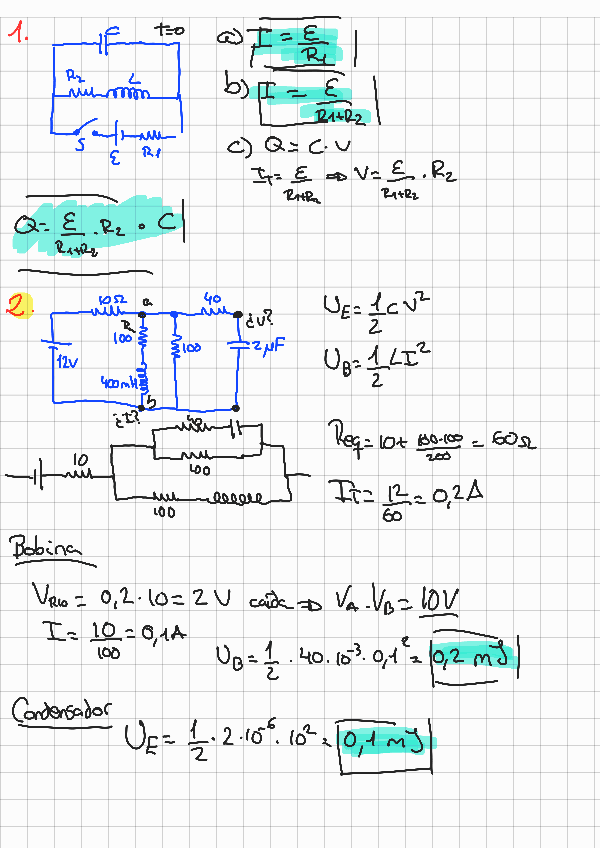 1.
C
t=0
R₂
L
S
ε
R1
a) I = ε/R₁
b) I = ε/(R1+R₂)
c) Q = C · V
I_T = ε/(R1+R₂) ⇒ V = ε/(R1+R₂) · R₂
Q = ε/(R1+R₂) · R₂ · C
2.
10Ω
a
40
¿V?
R
100
100
2 μF
12V
400mH
b
¿I?
U_E = 1/2 C V²
U_B = 1/2 L I²
40
10
100
100
Req = 10 + 100·100/200 = 60Ω
I_T = 12/60 = 0,2A
Bobina
V_R10 = 0,2 · 10 = 2 V caída ⇒ V_A - V_B = 10V
I = 10/100 = 0,1A
U_B = 1/2 · 40 · 10⁻³ · 0,1² = 0,2 mJ
Condensador
U_E = 1/2 · 2 · 10⁻⁶ · 10² = 0,1 mJ